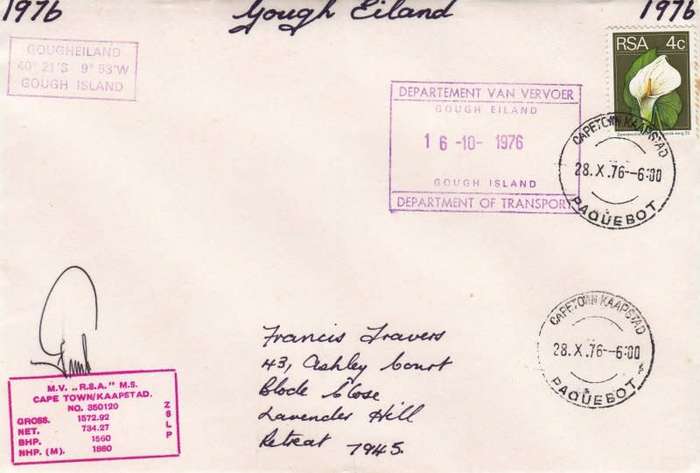 1976 Gough Eiland 1976
GOUGHEILAND
40° 21'S 9° 53'W
GOUGH ISLAND
DEPARTEMENT VAN VERVOER
GOUGH EILAND
16 -10- 1976
GOUGH ISLAND
DEPARTMENT OF TRANSPORT
RSA 4c
CAPE TOWN KAAPSTAD
28.X.76--6:00
PAQUEBOT
CAPE TOWN KAAPSTAD
28.X.76--6:00
PAQUEBOT
Francis Travers
43, Ashley Court
Blode Close
Lavender Hill
Retreat 7945.
M.V. „R.S.A." M.S.
CAPE TOWN/KAAPSTAD.
NO. 350120
GROSS. 1572.92
NET. 734.27
BHP. 1560
NHP. (M). 1860
ZSLP